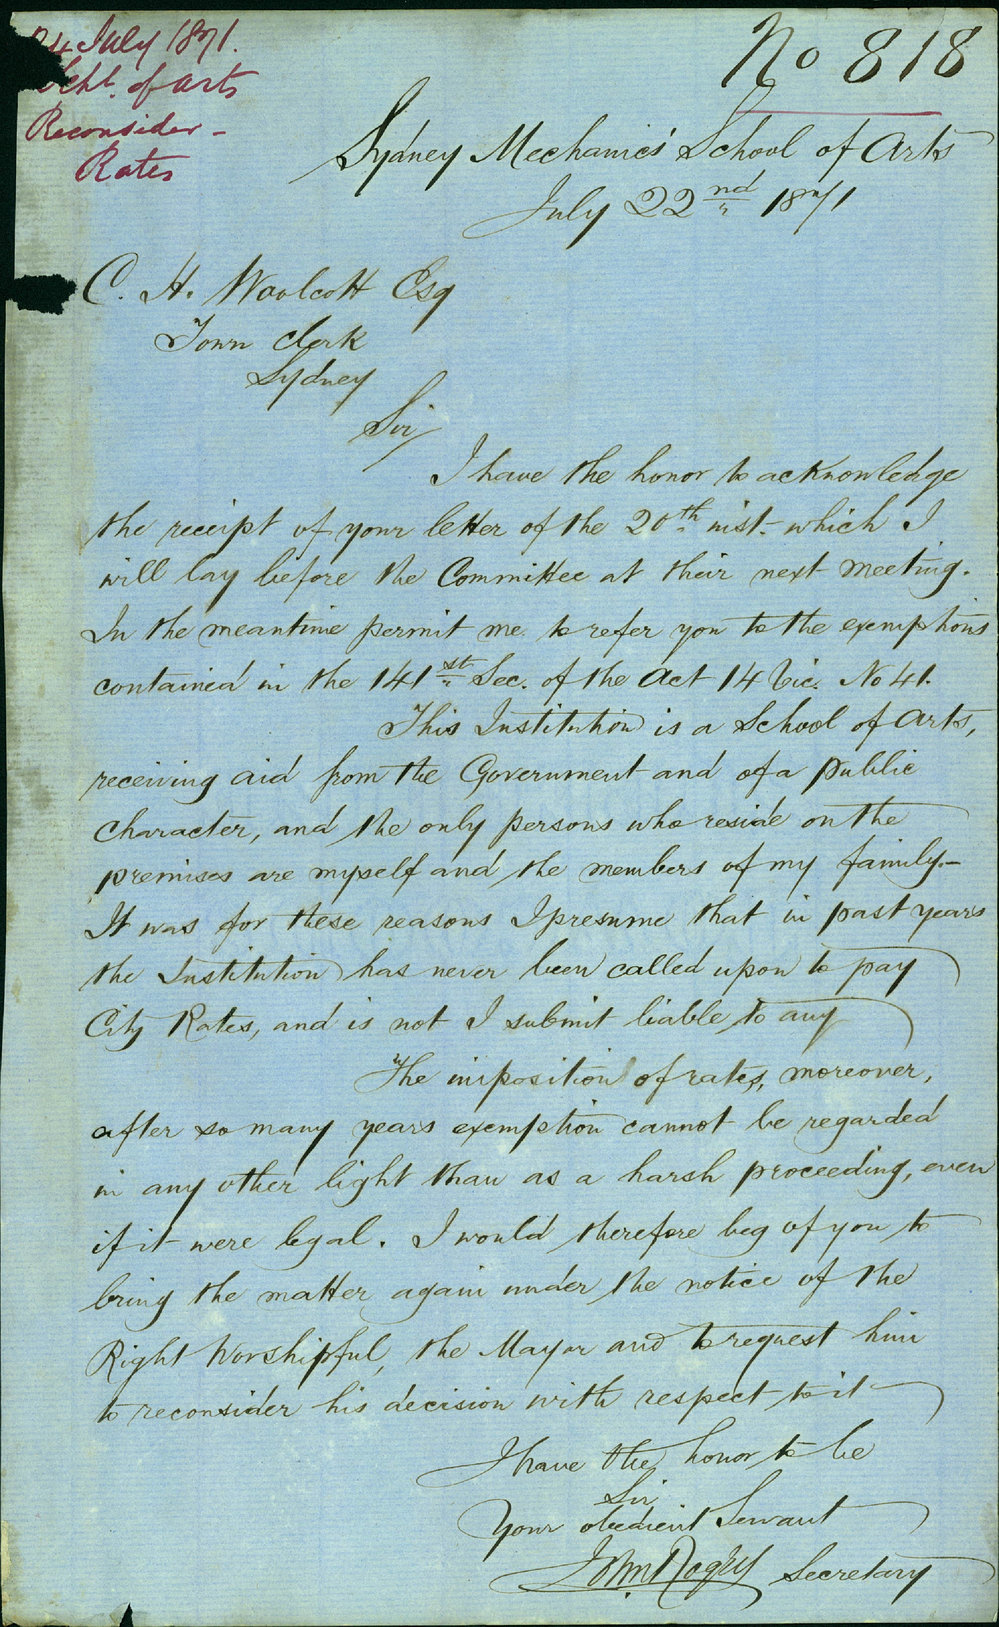 24 July 1871.
Schl. of Arts
Reconsider -
Rates
No 818
Sydney Mechanics' School of Arts
July 22nd 1871
C. H. Woolcott Esq
Town Clerk
Sydney
Sir
I have the honor to acknowledge
the receipt of your letter of the 20th inst. which I
will lay before the Committee at their next meeting.
In the meantime permit me to refer you to the exemptions
contained in the 141st Sec. of the Act 14 Vic. No 41.
This Institution is a School of Arts,
receiving aid from the Government and of a public
character, and the only persons who reside on the
premises are myself and the members of my family.-
It was for these reasons I presume that in past years
the Institution has never been called upon to pay
City Rates, and is not I submit liable to any
The imposition of rates, moreover,
after so many years exemption cannot be regarded
in any other light than as a harsh proceeding, even
if it were legal. I would therefore beg of you to
bring the matter again under the notice of the
Right Worshipful, the Mayor and to request him
to reconsider his decision with respect to it
I have the honor to be
Sir
Your obedient Servant
John Rogers Secretary